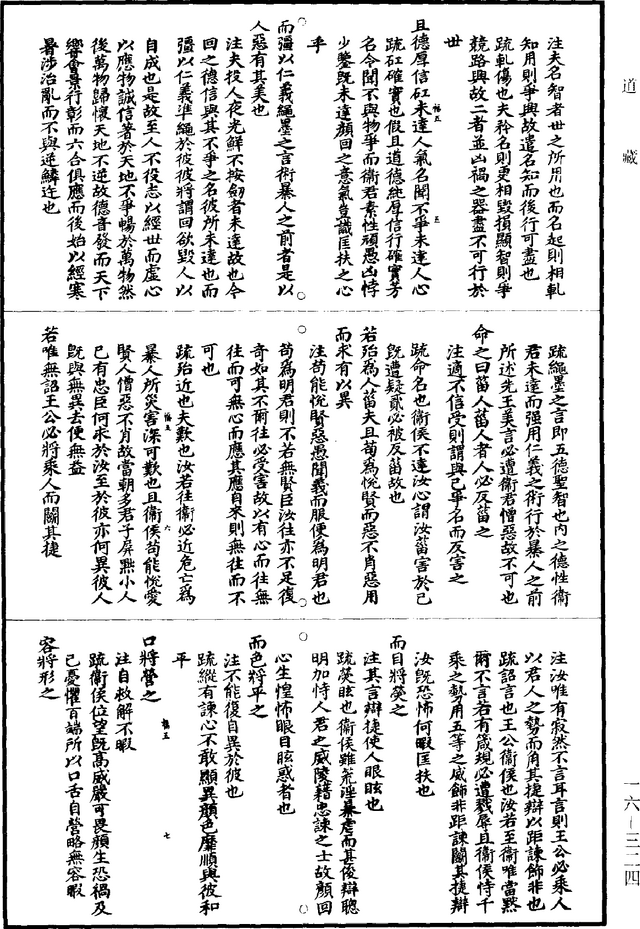 道藏
一六—三二四
注夫名智者世之所用也而名起則相軋
知用則爭興故遺名知而後行可盡也
疏軋傷也夫矜名則更相毀損顯智則爭
競路興故二者並凶禍之器盡不可行於
世
且德厚信矼未達人氣名聞不爭未達人心
疏矼確實也假且道德純厚信行確實芳
名令聞不與物爭而衛君素性頑愚凶悖
少鑒既未達顏回之意氣豈識匡扶之心
乎
而彊以仁義繩墨之言術暴人之前者是以
人惡有其美也
注夫投人夜光鮮不按劒者未達故也今
回之德信與其不爭之名彼所未達也而
彊以仁義準繩於彼彼將謂回欲毀人以
自成也是故至人不役志以經世而虛心
以應物誠信著於天地不爭暢於萬物然
後萬物歸懷天地不逆故德音發而天下
響會景行彰而六合俱應而後始以經寒
暑涉治亂而不與逆鱗迕也
疏繩墨之言即五德聖智也內之德性衛
君未達而强用仁義之術行於暴人之前
所述先王美言必遭衛君憎惡故不可也
命之曰菑人菑人者人必反菑之
注適不信受則謂與己爭名而反害之
疏命名也衛侯不達汝心謂汝菑害於己
既遭疑貳必被反菑故也
若殆為人菑夫且苟為悅賢而惡不肖惡用
而求有以異
注苟能悅賢惡愚聞義而服便為明君也
苟為明君則不若無賢臣汝往亦不足復
奇如其不爾往必受害故以有心而往無
往而可無心而應其應自來則無往而不
可也
疏殆近也夫歎也汝若往衛必近危亡為
暴人所災害深可歎也且衛侯苟能悅愛
賢人憎惡不肖故當朝多君子屏黜小人
已有忠臣何求於汝至於彼亦何異彼人
既與無異去便無益
若唯無詔王公必將乘人而鬬其捷
注汝唯有寂然不言耳言則王公必乘人
以君人之勢而角其捷辯以距諫飾非也
疏詔言也王公衛侯也汝若至衛唯當默
爾不言若有箴規必遭戮辱且衛侯恃千
乘之勢用五等之威飾非距諫鬬其捷辯
汝既恐怖何暇匡扶也
而目將熒之
注其言辯捷使人眼眩也
疏熒眩也衛侯雖荒淫暴虐而甚俊辯聰
明加恃人君之威陵籍忠諫之士故顏回
心生惶怖眼目眩惑者也
而色將平之
注不能復自異於彼也
疏縱有諫心不敢顯異顏色靡順與彼和
平
口將營之
注自救解不暇
疏衛侯位望既高威嚴可畏顏生恐禍及
己憂懼百端所以口舌自營略無容暇
容將形之